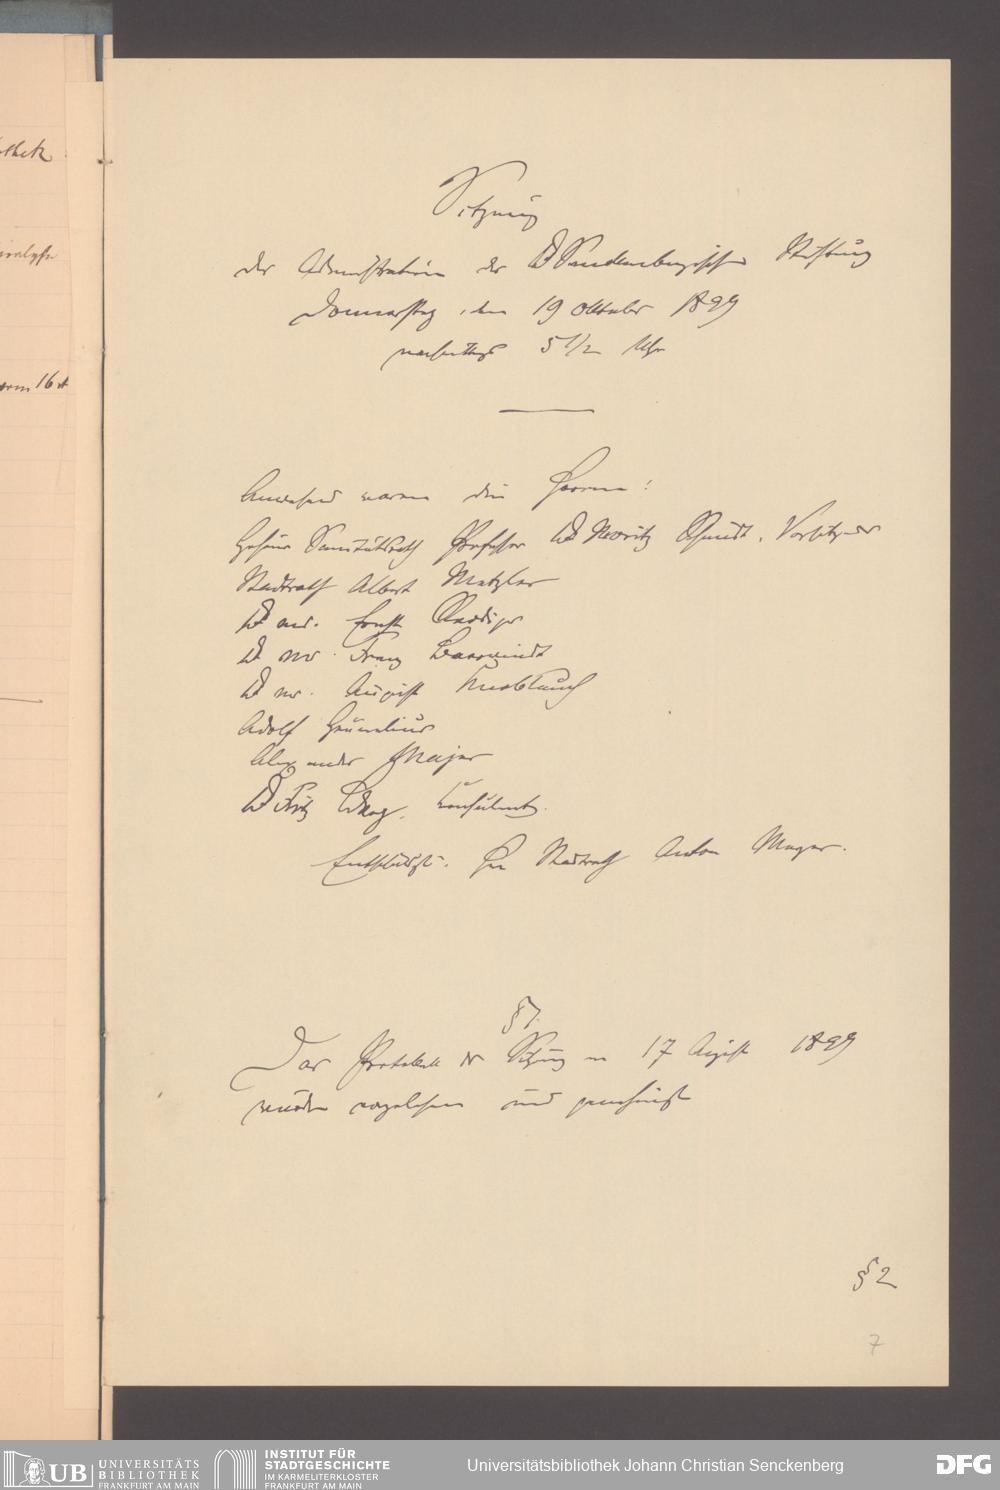 othek
Sitzung
der Administration der Dr Senckenbergischen Stiftung
Donnerstag, den 19 Oktober 1899
nachmittags 5 1/2 Uhr
Anwesend waren die Herren:
Geheimer Sanitätsrath Professor Dr Moritz Schmidt, Vorsitzender
Stadtrath Albert Metzler
Dr med. Ernst Roediger
Dr med. Franz Baerwindt
Dr med. August Knoblauch
Adolf Grunelius
Alexander Majer
Dr Fritz Berg, Consulent.
Entschuldigt: Herr Stadtrath Anton Meyer.
§ 1.
Das Protokoll der Sitzung vom 17 August 1899
wurde vorgelesen und genehmigt
§ 2
7
UB UNIVERSITÄTS
BIBLIOTHEK
FRANKFURT AM MAIN
INSTITUT FÜR
STADTGESCHICHTE
IM KARMELITERKLOSTER
FRANKFURT AM MAIN
Universitätsbibliothek Johann Christian Senckenberg
DFG